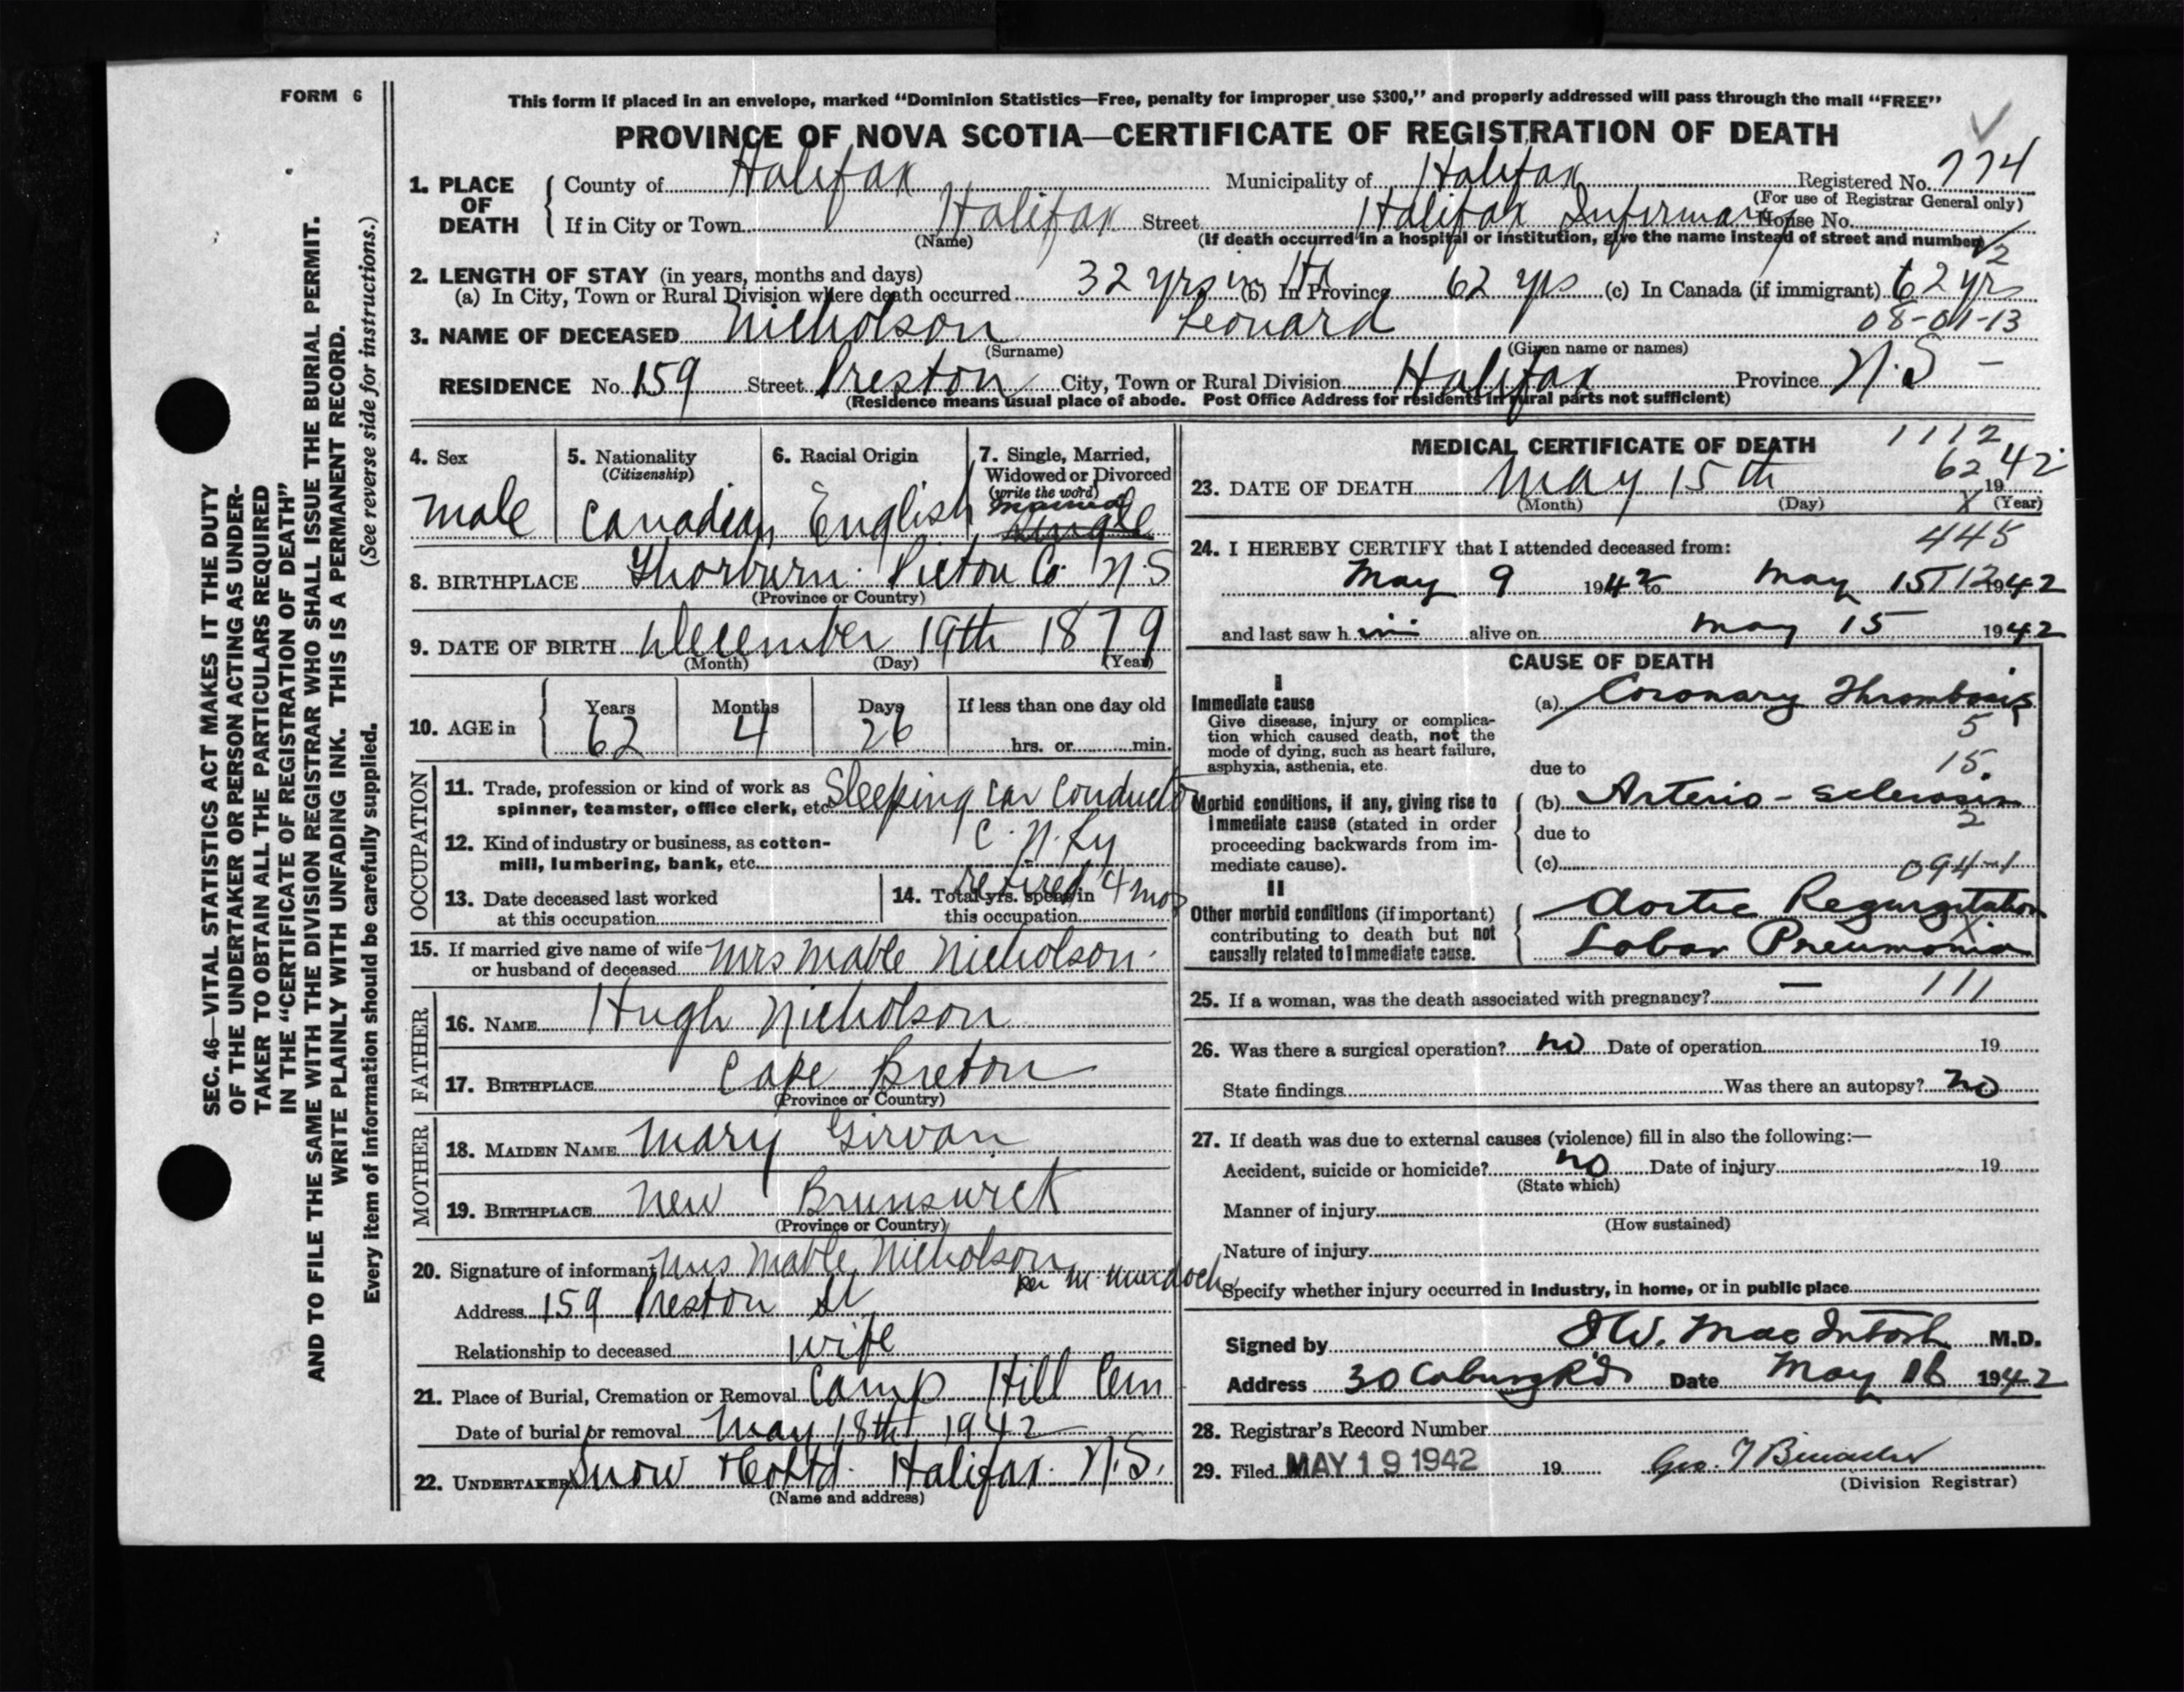 FORM 6
This form if placed in an envelope, marked “Dominion Statistics—Free, penalty for improper use $300,” and properly addressed will pass through the mail “FREE”
PROVINCE OF NOVA SCOTIA—CERTIFICATE OF REGISTRATION OF DEATH
1. PLACE OF DEATH { County of Halifax Municipality of Halifax Registered No. 774
(For use of Registrar General only)
If in City or Town Halifax Street Halifax Infirmary House No.
(Name) (If death occurred in a hospital or institution, give the name instead of street and number)
2. LENGTH OF STAY (in years, months and days)
(a) In City, Town or Rural Division where death occurred 32 yrs in Hfx (b) In Province 62 yrs (c) In Canada (if immigrant) 62 yrs
08-01-13
3. NAME OF DECEASED Nicholson Leonard
(Surname) (Given name or names)
RESIDENCE No. 159 Street Preston City, Town or Rural Division Halifax Province N.S –
(Residence means usual place of abode. Post Office Address for residents in rural parts not sufficient)
4. Sex
male
5. Nationality
(Citizenship)
Canadian
6. Racial Origin
English
7. Single, Married,
Widowed or Divorced
(write the word)
married
Single
8. BIRTHPLACE Thorburn Pictou Co. N S
(Province or Country)
9. DATE OF BIRTH December 19th 1879
(Month) (Day) (Year)
10. AGE in { Years 62 Months 4 Days 26 If less than one day old
hrs. or min.
OCCUPATION
11. Trade, profession or kind of work as
spinner, teamster, office clerk, etc. Sleeping car conductor
12. Kind of industry or business, as cotton-
mill, lumbering, bank, etc. C.N.Ry
13. Date deceased last worked
at this occupation
14. Total yrs. spent in
this occupation
retired 4 mos
15. If married give name of wife
or husband of deceased Mrs Mable Nicholson
FATHER
16. NAME Hugh Nicholson
17. BIRTHPLACE Cape Breton
(Province or Country)
MOTHER
18. MAIDEN NAME Mary Girvan
19. BIRTHPLACE New Brunswick
(Province or Country)
20. Signature of informant Mrs Mable Nicholson
per M. Murdoch
Address 159 Preston St
Relationship to deceased wife
21. Place of Burial, Cremation or Removal Camp Hill Cem
Date of burial or removal May 18th 1942
22. UNDERTAKER Snow & Co Ltd. Halifax N.S.
(Name and address)
MEDICAL CERTIFICATE OF DEATH
1112
62
23. DATE OF DEATH May 15th 1942
(Month) (Day) (Year)
X
445
24. I HEREBY CERTIFY that I attended deceased from:
May 9 1942 to May 15 1942
and last saw him alive on May 15 1942
CAUSE OF DEATH
I
Immediate cause
Give disease, injury or complica-
tion which caused death, not the
mode of dying, such as heart failure,
asphyxia, asthenia, etc.
(a) Coronary Thrombosis
5
15
due to
Morbid conditions, if any, giving rise to
immediate cause (stated in order
proceeding backwards from im-
mediate cause).
(b) Arterio-sclerosis
2
due to
(c) 094-1
II
Other morbid conditions (if important)
contributing to death but not
causally related to immediate cause.
Aortic Regurgitation
Lobar Pneumonia
25. If a woman, was the death associated with pregnancy? — 111
26. Was there a surgical operation? no Date of operation 19
State findings Was there an autopsy? No
27. If death was due to external causes (violence) fill in also the following:—
Accident, suicide or homicide? no Date of injury 19
(State which)
Manner of injury
(How sustained)
Nature of injury
Specify whether injury occurred in Industry, in home, or in public place
Signed by J W. MacIntosh M.D.
Address 30 Coburg Rd Date May 16 1942
28. Registrar's Record Number
29. Filed MAY 19 1942 19
(Division Registrar)
SEC. 46—VITAL STATISTICS ACT MAKES IT THE DUTY
OF THE UNDERTAKER OR PERSON ACTING AS UNDER-
TAKER TO OBTAIN ALL THE PARTICULARS REQUIRED
IN THE “CERTIFICATE OF REGISTRATION OF DEATH”
AND TO FILE THE SAME WITH THE DIVISION REGISTRAR WHO SHALL ISSUE THE BURIAL PERMIT.
WRITE PLAINLY WITH UNFADING INK. THIS IS A PERMANENT RECORD.
Every item of information should be carefully supplied. (See reverse side for instructions.)